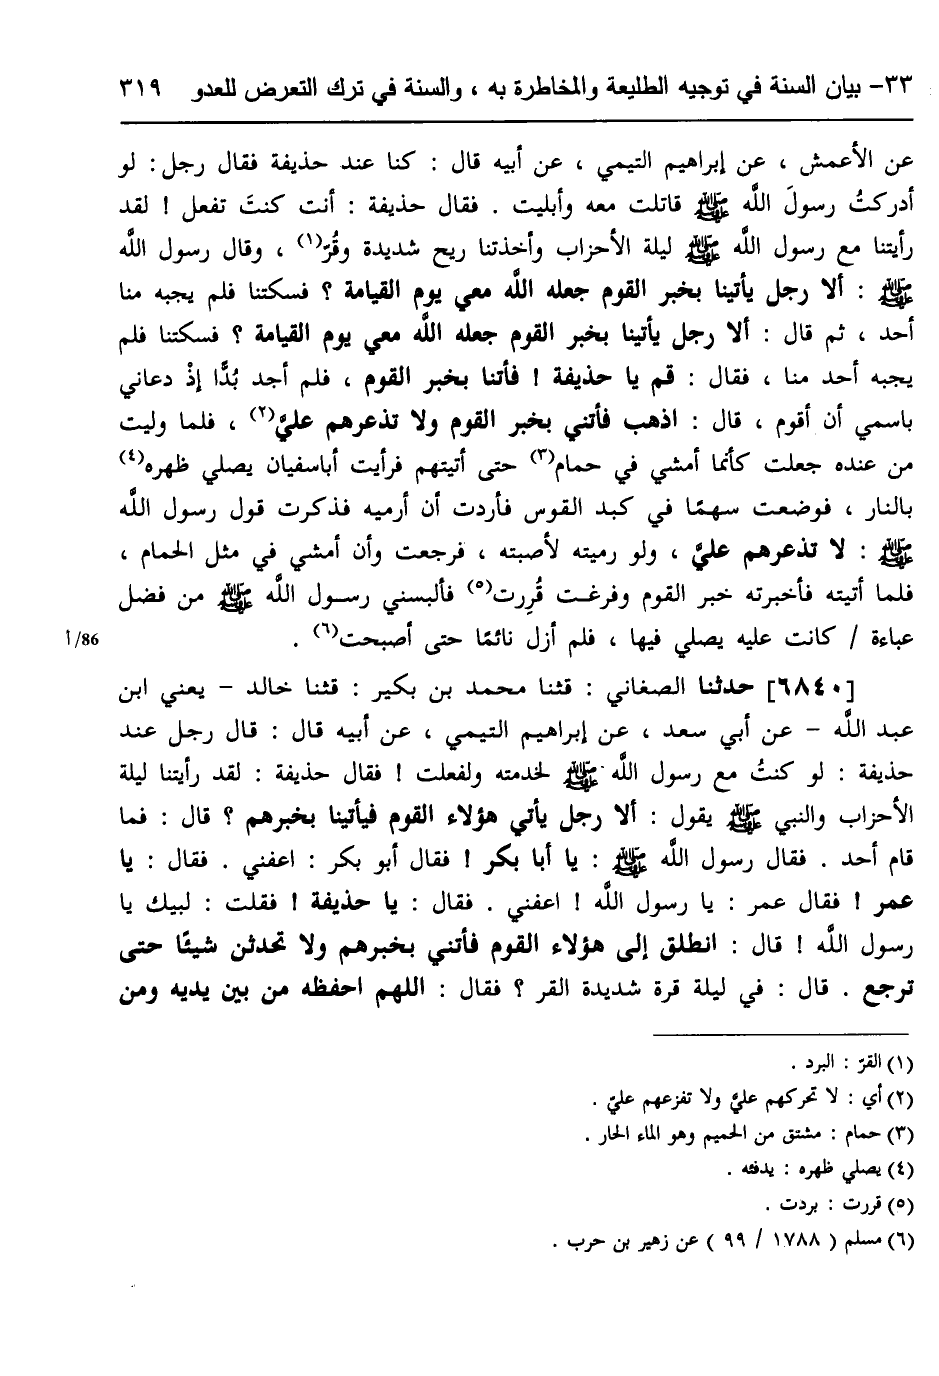 ٣٣- بيان السنة في توجيه الطليعة والمخاطرة به ، والسنة في ترك التعرض للعدو ٣١٩
عن الأعمش ، عن إبراهيم التيمي ، عن أبيه قال : كنا عند حذيفة فقال رجل : لو
أدركتُ رسولَ اللَّه ﷺ قاتلت معه وأبليت . فقال حذيفة : أنت كنتَ تفعل ! لقد
رأيتنا مع رسول اللَّه ﷺ ليلة الأحزاب وأخذتنا ريح شديدة وقُرّ(١) ، وقال رسول اللَّه
ﷺ : ألا رجل يأتينا بخبر القوم جعله اللَّه معي يوم القيامة ؟ فسكتنا فلم يجبه منا
أحد ، ثم قال : ألا رجل يأتينا بخبر القوم جعله اللَّه معي يوم القيامة ؟ فسكتنا فلم
يجبه أحد منا ، فقال : قم يا حذيفة ! فأتنا بخبر القوم ، فلم أجد بُدًّا إذْ دعاني
باسمي أن أقوم ، قال : اذهب فأتني بخبر القوم ولا تذعرهم عليَّ(٢) ، فلما وليت
من عنده جعلت كأنما أمشي في حمام(٣) حتى أتيتهم فرأيت أباسفيان يصلي ظهره(٤)
بالنار ، فوضعت سهمًا في كبد القوس فأردت أن أرميه فذكرت قول رسول اللَّه
ﷺ : لا تذعرهم عليَّ ، ولو رميته لأصبته ، فرجعت وأن أمشي في مثل الحمام ،
فلما أتيته فأخبرته خبر القوم وفرغت قُرِرت(٥) فألبسني رسول اللَّه ﷺ من فضل
عباءة / كانت عليه يصلي فيها ، فلم أزل نائمًا حتى أصبحت(٦) . 86/أ
[٦٨٤٠] حدثنا الصغاني : قثنا محمد بن بكير : قثنا خالد – يعني ابن
عبد اللَّه – عن أبي سعد ، عن إبراهيم التيمي ، عن أبيه قال : قال رجل عند
حذيفة : لو كنتُ مع رسول اللَّه ﷺ لخدمته ولفعلت ! فقال حذيفة : لقد رأيتنا ليلة
الأحزاب والنبي ﷺ يقول : ألا رجل يأتي هؤلاء القوم فيأتينا بخبرهم ؟ قال : فما
قام أحد . فقال رسول اللَّه ﷺ : يا أبا بكر ! فقال أبو بكر : اعفني . فقال : يا
عمر ! فقال عمر : يا رسول اللَّه ! اعفني . فقال : يا حذيفة ! فقلت : لبيك يا
رسول اللَّه ! قال : انطلق إلى هؤلاء القوم فأتني بخبرهم ولا تحدثن شيئًا حتى
ترجع . قال : في ليلة قرة شديدة القر ؟ فقال : اللهم احفظه من بين يديه ومن
(١) القرّ : البرد .
(٢) أي : لا تحركهم عليَّ ولا تفزعهم عليّ .
(٣) حمام : مشتق من الحميم وهو الماء الحار .
(٤) يصلي ظهره : يدفئه .
(٥) قررت : بردت .
(٦) مسلم ( ١٧٨٨ / ٩٩ ) عن زهير بن حرب .